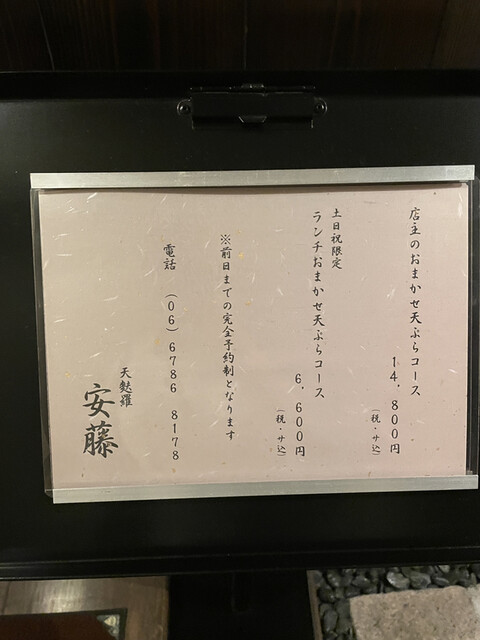 店主のおまかせ天ぷらコース
14.800円
(税・サ込)
土日祝限定
ランチおまかせ天ぷらコース
6.600円
(税・サ込)
※前日までの完全予約制となります
電話 (06)6786 8178
天麩羅
安藤